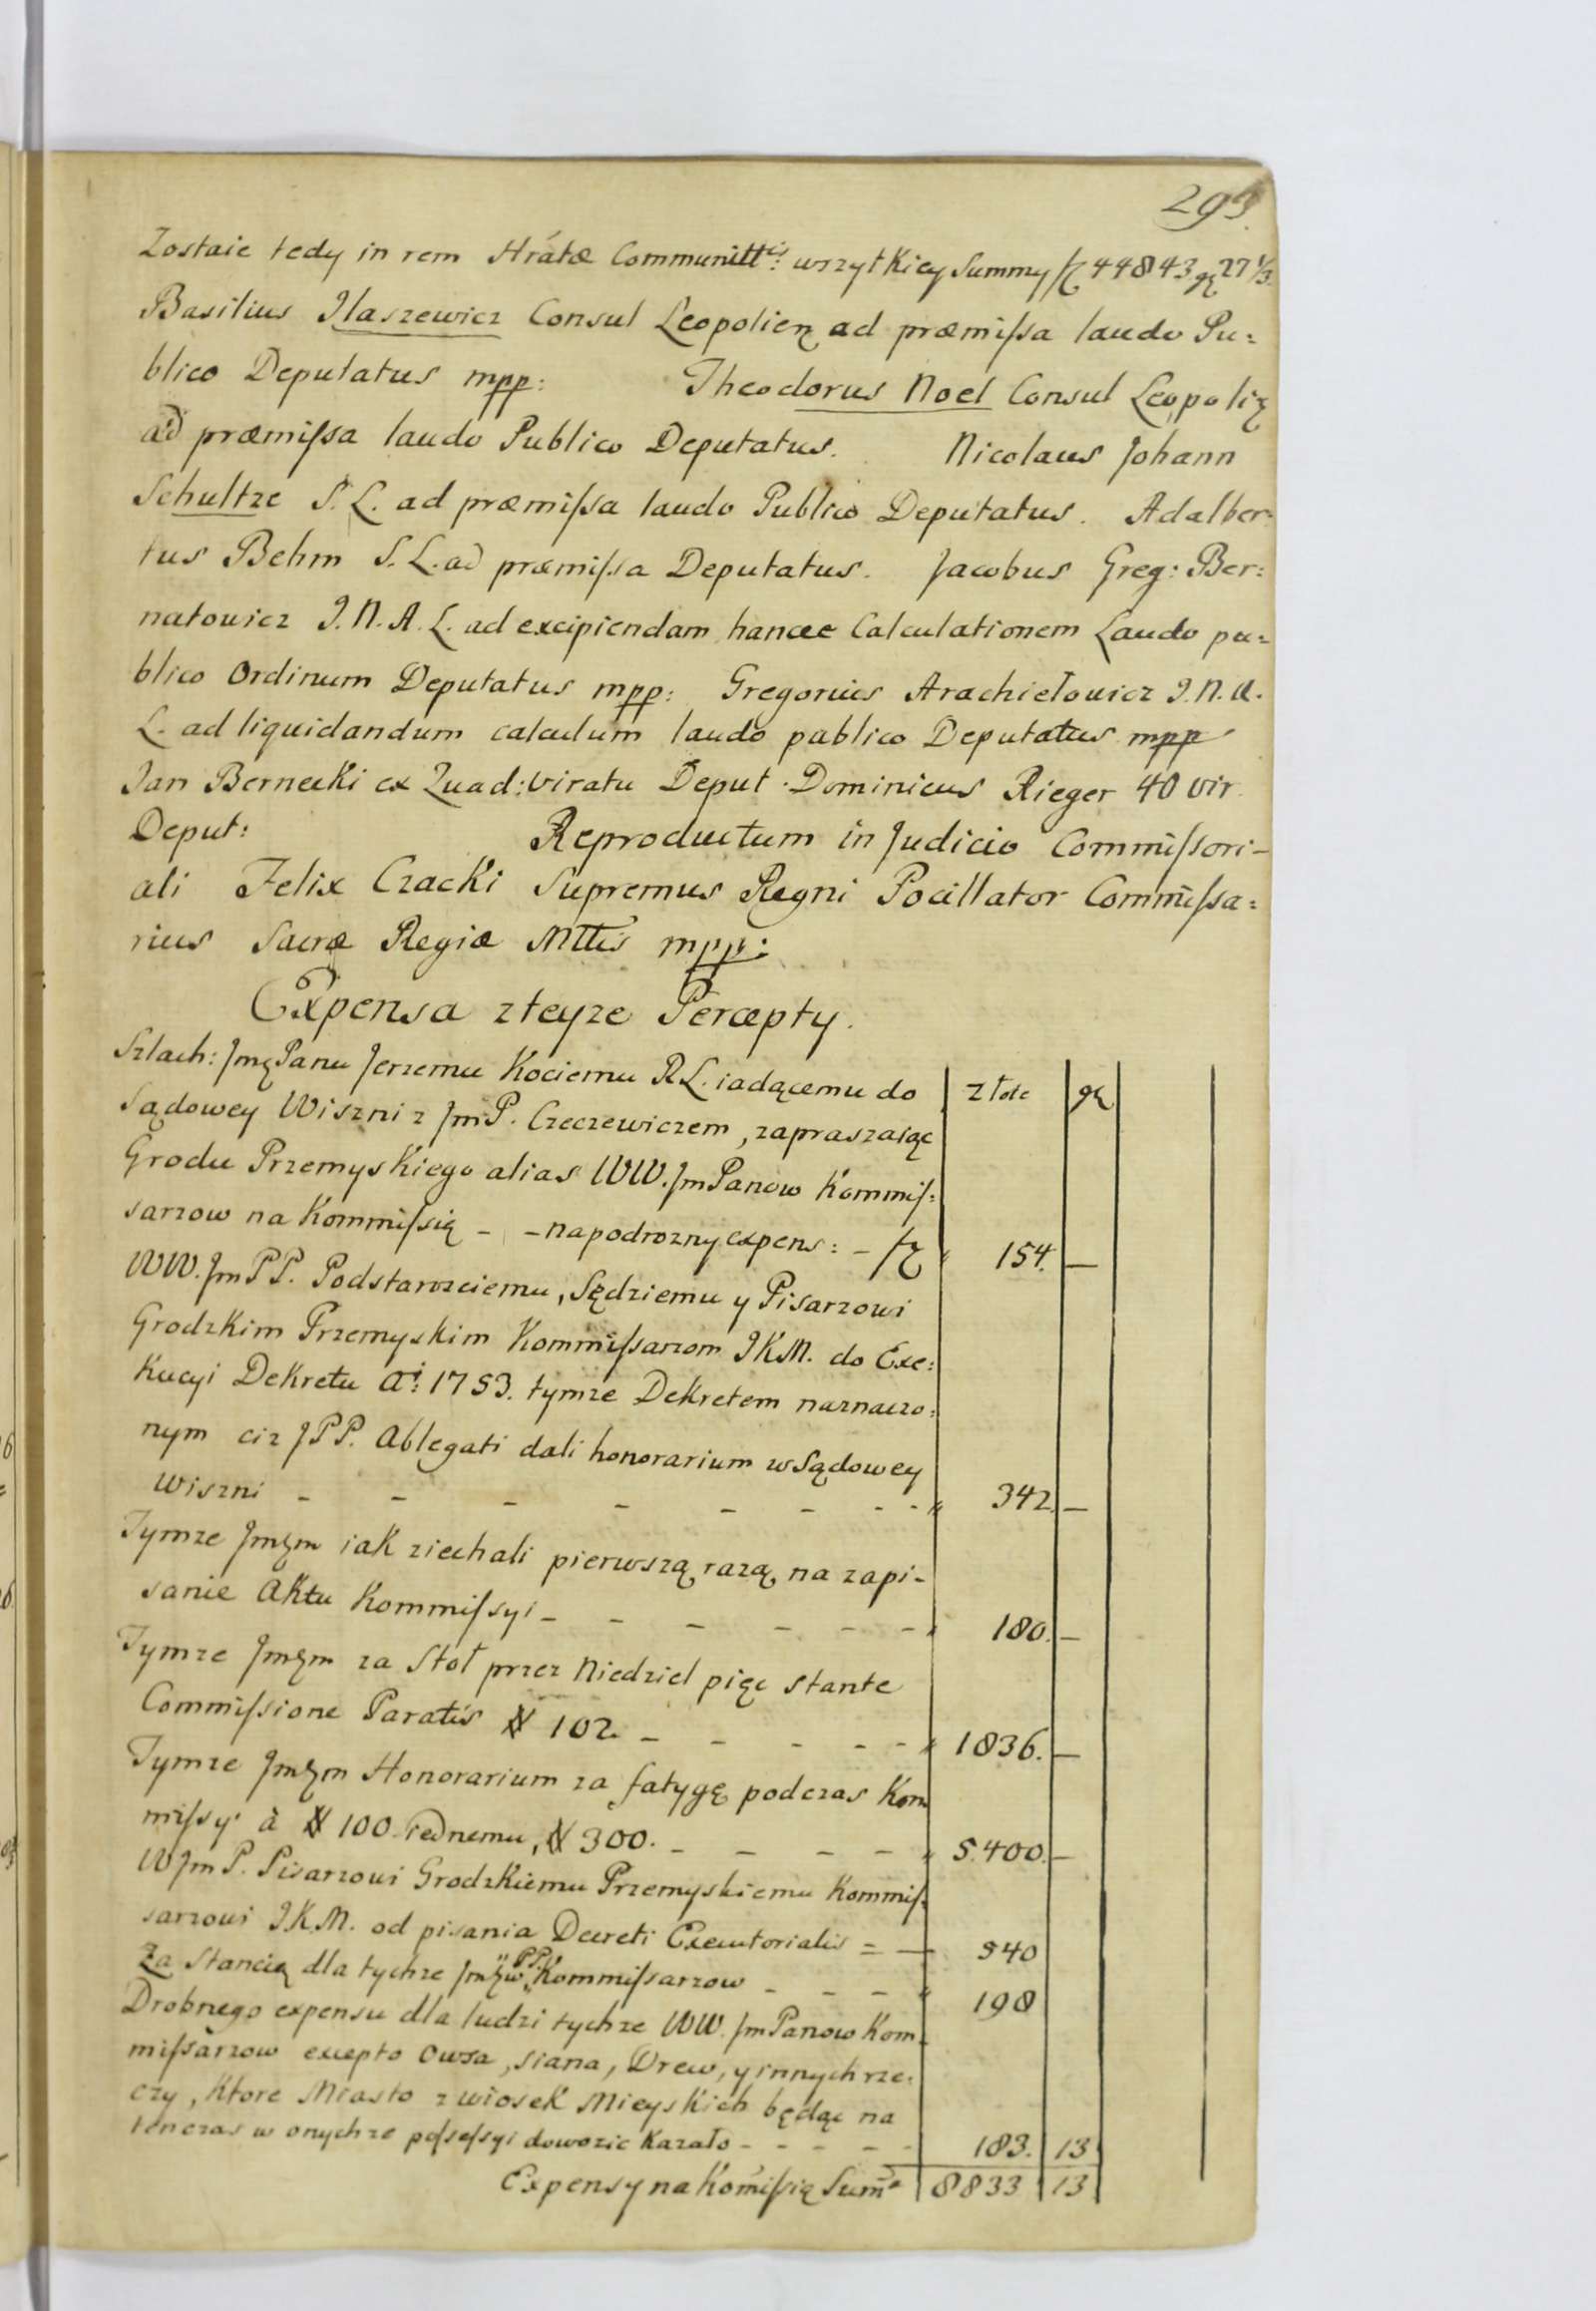 293.
Zostaie tedy in rem Hrátæ Communittis: wszytkiey Summy fl 44843 gr 27 1/3.
Basilius Ilaszewicz Consul Leopolien ad præmissa laudo Pu=
blico Deputatus mpp: Theodorus Noel Consul Leopoli
ad præmissa laudo Publico Deputatus. Nicolaus Johann
Schultze S. L. ad præmissa laudo Publico Deputatus. Adalber=
tus Behm S. L. ad præmissa Deputatus. Jacobus Greg: Ber=
natowicz J. N. A. L. ad excipiendam hancce Calculationem Laudo pu=
blico Ordinum Deputatus mpp: Gregorius Arachiełowicz J. N. A.
L. ad liquidandum calculum laudo publico Deputatus mpp
Jan Bernecki ex Quad: viratu Deput. Dominicus Rieger 40 vir.
Deput: Reproductum in Judicio Commissori-
ali Felix Czacki Supremus Regni Pocillator Commissa=
rius Sacræ Regiæ Mttis mpp:
Expensa zteyze Percepty.
Szlach: Jmę Panu Jerzemu Kociemu R L. iadącemu do złote gr
Sądowey Wiszni z Jm P. Czeczewiczem, zapraszaiąc
Grodu Przemyskiego alias WW. Jm Panow Kommis=
sarzow na Kommissią - - na podrozny expens: - fl 154. —
WW. Jm PP. Podstarosciemu, Sędziemu y Pisarzowi
Grodzkim Przemyskim Kommissarzom JKM. do Exe=
kucyi Dekretu Ai: 1753. tymze Dekretem naznaczo=
nym ciz JPP. Ablegati dali honorarium w Sądowey
Wiszni - - - - - - - - " 342. —
Tymze Jmm iak ziechali pierwszą razą, na zapi-
sanie Aktu Kommissyi - - - - - - " 180. —
Tymze Jmm za Stoł przez Niedziel pięc stante
Commissione Paratis # 102. - - - - - " 1836. —
Tymze Jmm Honorarium za fatygę podczas Kom
missyi à # 100. iednemu, # 300. - - - - " 5.400. —
W Jm P. Pisarzowi Grodzkiemu Przemyskiemu Kommis=
sarzowi JKM. od pisania Decreti Executorialis = — 540
Za Stancią dla tychze Jmw PP. Kommissarzow - - - " 198
Drobnego expensu dla ludzi tychze WW. Jm Panow Kom=
missarzow excepto Owsa, siana, Drew, y innych rze=
czy, ktore Miasto z wiosek Mieyskich będąc na
tenczas w onychze possessyi dowozic kazało - - - - - 183. 13
Expensy na Komissią Sum̃a 8833 13